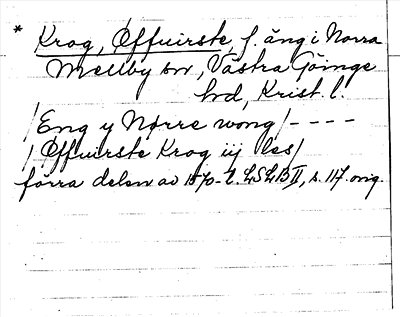 * Krog, Øffuirste, f. äng i Norra
Mellby sn, Västra Göinge
hd, Krist. l.
/Eng y Nørre wong/----
/Øffuirste Krog iij les/
förra delen av 1570-t. LSLB II, s. 117. orig.